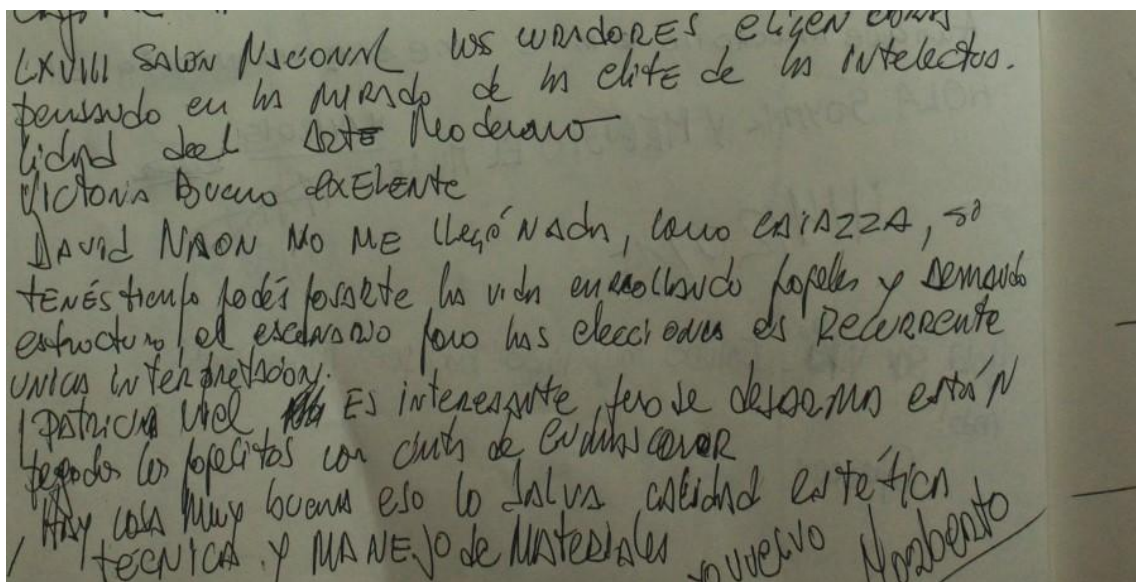 LXVIII SALON NACIONAL los CURADORES eligen
pensando en la MIRADA de la elite de la intelectua.
lidad deel ARTE Moderno
VICTORIA Bueno EXELENTE
DAVID NAON NO ME LLegó NAdA, como CAIAZZA, si
TENÉS tiempo podés pasarte la vida enrollando papeles y armando
estructura, el escenario para las elecciones es RECURRENTE
UNICA INTERPRETACION.
PATRICIA Viel ES interesante, pero se desarma están
pegados los papelitos con cinta de enmascarar
HAY cosas muy buenas eso lo salva calidad estética
TÉCNICA Y MANEJO de MATERIALES
yo vuelvo Norberto